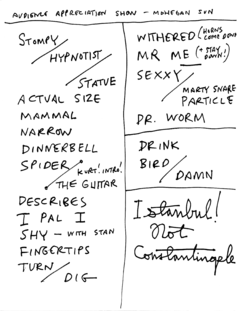 AUDIENCE APPRECIATION SHOW - MOHEGAN SUN
STOMPY
HYPNOTIST
STATUE
ACTUAL SIZE
MAMMAL
NARROW
DINNERBELL
SPIDER
KURT! INTRO!
THE GUITAR
DESCRIBES
I PAL I
SHY - WITH STAN
FINGERTIPS
TURN
DIG
WITHERED (HORNS COME DOWN
MR ME (+ STAY DOWN!)
SEXXY
MARTY SNARE
PARTICLE
DR. WORM
DRINK
BIRD
DAMN
Istanbul!
Not
Constantinople